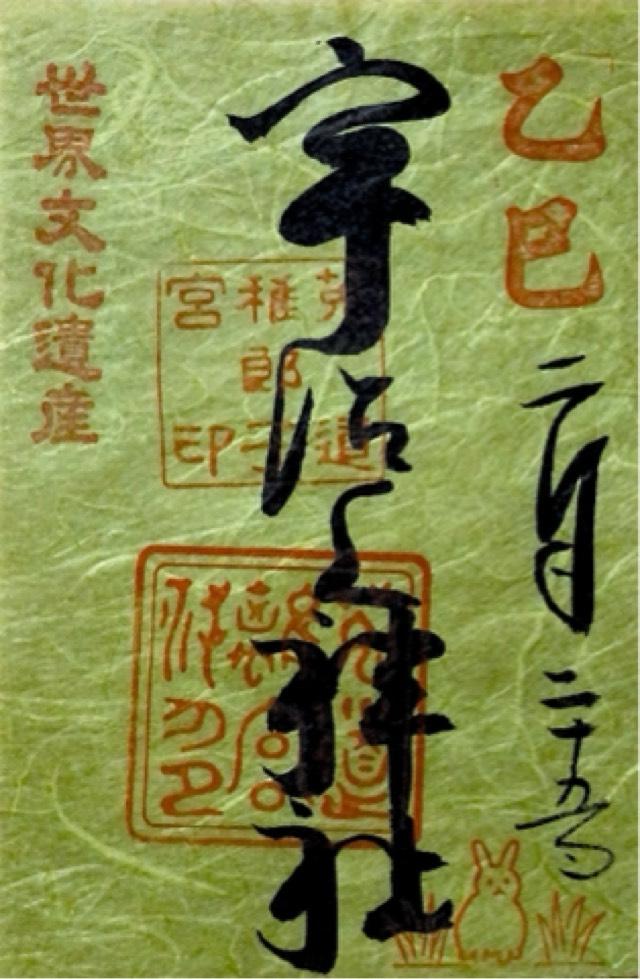 乙巳
二月二十五日
宇治上神社
稚郎子
宮印
世界文化遺産